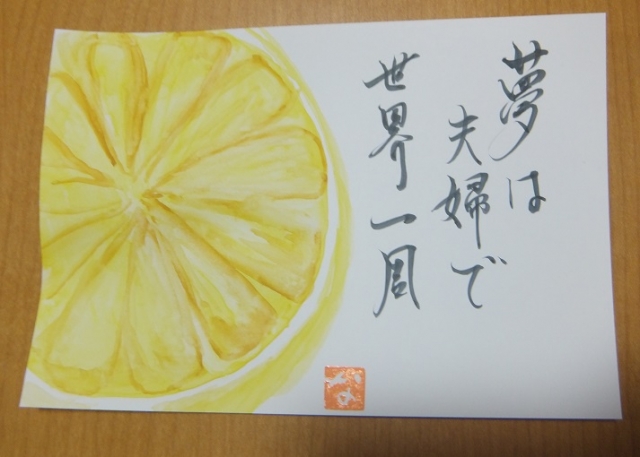 夢は
夫婦で
世界一周